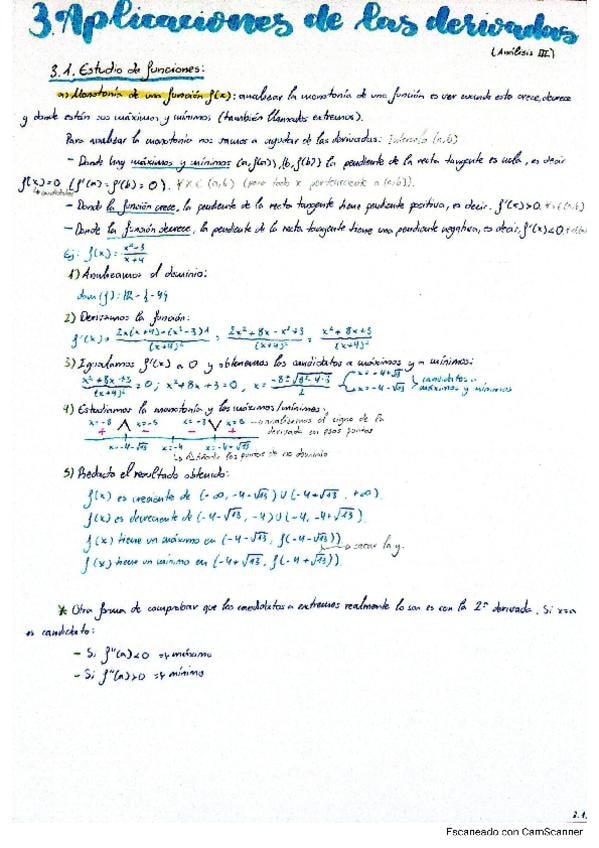 3. Aplicaciones de las derivadas
(Análisis III)
3.1. Estudio de funciones:
a) Monotonía de una función f(x): analizar la monotonía de una función es ver cuando esta crece, decrece
y donde están sus máximos y mínimos (también llamados extremos).
Para analizar la monotonía nos vamos a ayudar de las derivadas: Intervalo (a,b)
- Donde hay máximos y mínimos (a, f(a)), (b, f(b)) la pendiente de la recta tangente es nula, es decir
f'(x)=0 (f'(a)=f'(b)=0). ∀x∈(a,b) (para todo x perteneciente a (a,b)).
candidatos
- Donde la función crece, la pendiente de la recta tangente tiene pendiente positiva, es decir, f'(x)>0, ∀x∈(a,b)
- Donde la función decrece, la pendiente de la recta tangente tiene una pendiente negativa, es decir, f'(x)<0,
Ej: f(x) = x²-3 / x+4
1) Analizamos el dominio:
dom(f): ℝ-{-4}
2) Derivamos la función:
f'(x) = 2x(x+4)-(x²-3)1 / (x+4)² = 2x²+8x-x²+3 / (x+4)² = x²+8x+3 / (x+4)²
3) Igualamos f'(x) a 0 y obtenemos los candidatos a máximos y mínimos:
x²+8x+3 / (x+4)² = 0; x²+8x+3=0, x = -8±√8²-4·3 / 2 x=-4+√13 x=-4-√13 candidatos a máximos y mínimos
4) Estudiamos la monotonía y los máximos/mínimos.
x=-8 x=-5 x=-3 x=0 → analizamos el signo de la
+ - - + derivada en esos puntos
x=-4-√13 x=-4 x=-4+√13
los puntos de no dominio
5) Redacto el resultado obtenido:
f(x) es creciente de (-∞, -4-√13) ∪ (-4+√13, +∞)
f(x) es decreciente de (-4-√13, -4) ∪ (-4, -4+√13)
f(x) tiene un máximo en (-4-√13, f(-4-√13))
→ sacar la y.
f(x) tiene un mínimo en (-4+√13, f(-4-√13))
* Otra forma de comprobar que los candidatos a extremos realmente lo son es con la 2ª derivada. Si x=a
es candidato:
- Si f''(a)<0 => máximo
- Si f''(a)>0 => mínimo
3.1.
Escaneado con CamScanner